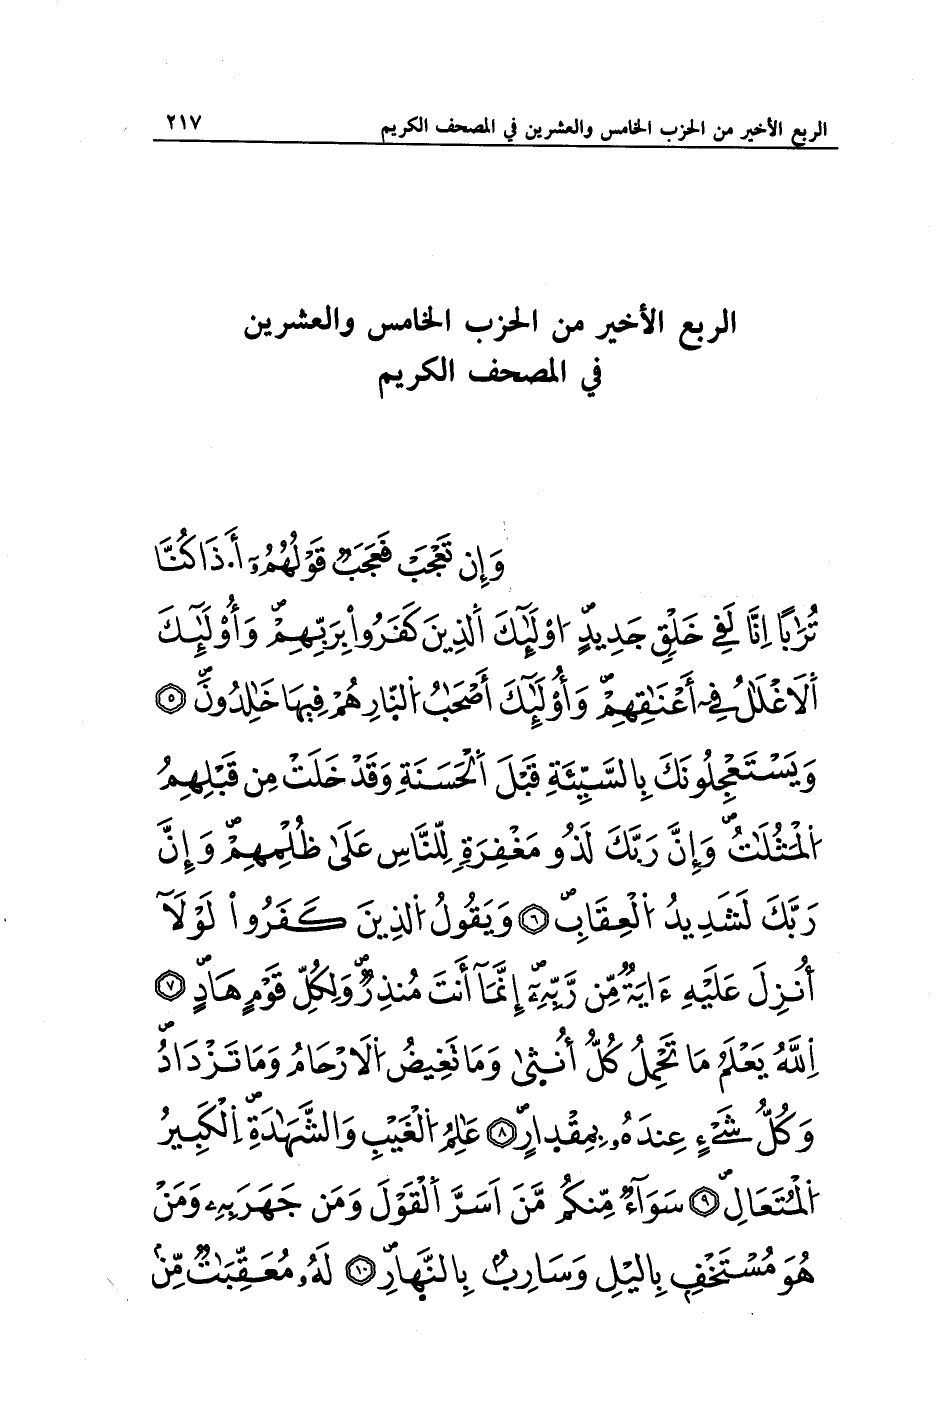 الربع الأخير من الحزب الخامس والعشرين في المصحف الكريم ٢١٧
الربع الأخير من الحزب الخامس والعشرين
في المصحف الكريم
وَإِن تَعْجَبْ فَعَجَبٌ قَوْلُهُمُۥٓ أَ.ذَا كُنَّا
تُرَٰباً اِنَّا لَفِے خَلْقٍ جَدِيدٍۖ ا۟وْلَٰٓئِكَ اَ۬لذِينَ كَفَرُواْ بِرَبِّهِمْۖ وَأُوْلَٰٓئِكَ
اَ۬لَاغْلَٰلُ فِےٓ أَعْنَٰقِهِمْۖ وَأُوْلَٰٓئِكَ أَصْحَٰبُ اُ۬لنّ۪ارِ هُمْ فِيهَا خَٰلِدُونَۖ ٥
وَيَسْتَعْجِلُونَكَ بِالسَّيِّئَةِ قَبْلَ اَ۬لْحَسَنَةِ وَقَدْ خَلَتْ مِن قَبْلِهِمُ
اُ۬لْمَثُلَٰتُۖ وَإِنَّ رَبَّكَ لَذُو مَغْفِرَةٍ لِّلنَّاسِ عَلَىٰ ظُلْمِهِمْۖ وَإِنَّ
رَبَّكَ لَشَدِيدُ اُ۬لْعِقَابِۖ ٦ وَيَقُولُ اُ۬لذِينَ كَفَرُواْ لَوْلَآ
أُنزِلَ عَلَيْهِ ءَايَةٌ مِّن رَّبِّهِۦٓۖ إِنَّمَآ أَنتَ مُنذِرٌۖ وَلِكُلِّ قَوْمٍ هَادٍۖ ٧
اِ۬للَّهُ يَعْلَمُ مَا تَحْمِلُ كُلُّ أُنث۪ىٰ وَمَا تَغِيضُ اُ۬لَارْحَامُ وَمَا تَزْدَادُۖ
وَكُلُّ شَےْءٍ عِندَهُۥ بِمِقْدَارٍۖ ٨ عَٰلِمُ اُ۬لْغَيْبِ وَالشَّهَٰدَةِۖ اِ۬لْكَبِيرُ
اُ۬لْمُتَعَالِۖ ٩ سَوَآءٌ مِّنكُم مَّنَ اَسَرَّ اَ۬لْقَوْلَ وَمَن جَهَرَ بِهِۦ وَمَنْ
هُوَ مُسْتَخْفِۢ بِاليْلِ وَسَارِبُۢ بِالنَّهَارِۖ ١٠ لَهُۥ مُعَقِّبَٰتٌ مِّنۢ